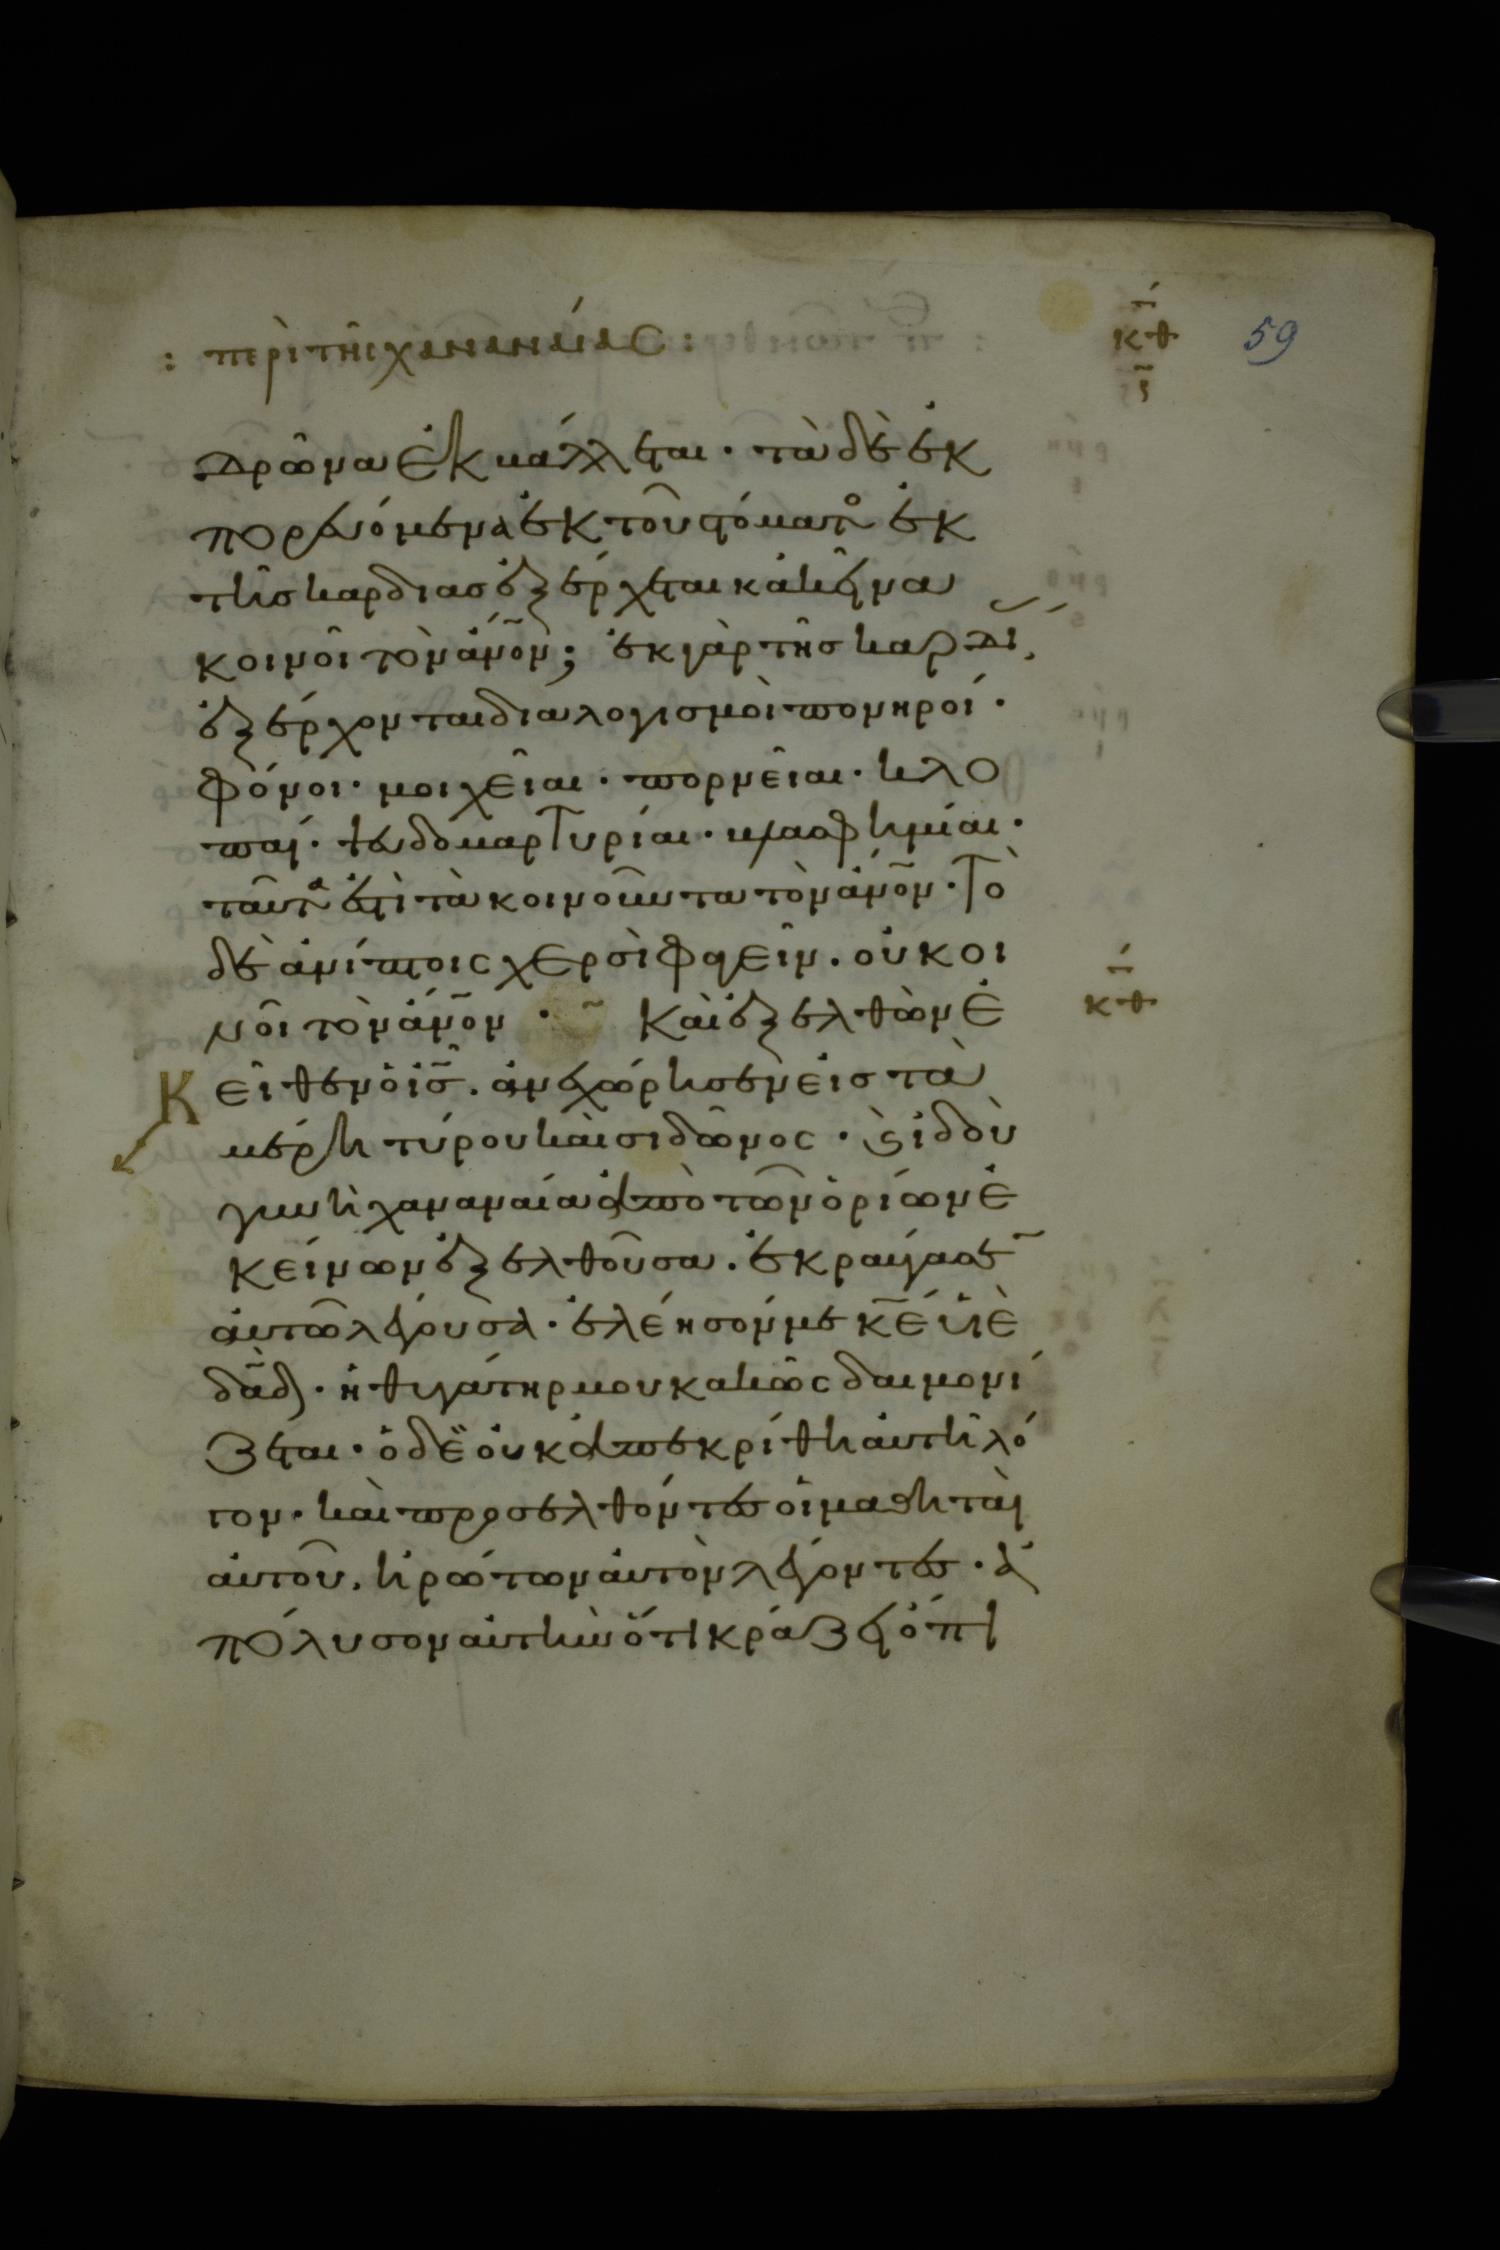 : περὶ τῆς χαναναίας :
κθ
59
δρῶνα ἐκβάλλεται · τὰ δὲ ἐκ
πορευόμενα ἐκ τοῦ στόματο ἐκ
τῆς καρδιας ἐξέρχεται κἀκεῖνα
κοινοῖ τὸν ἄνο̅ν; ἐκ γὰρ τῆς καρδι
ἐξέρχονται διαλογισμοὶ πονηροί ·
φόνοι · μοιχεῖαι · πορνεῖαι · κλο
παί · ψευδομαρτυρίαι · βλασφημίαι ·
ταῦτα ἐστὶ τὰ κοινοῦντα τὸν ἄνο̅ν · τὸ
δὲ ἀνίπτοις χερσὶ φαγεῖν · οὐ κοι
νοῖ τὸν ἄνο̅ν · Καὶ ἐξελθὼν ἐ
κθ
Κ εῖθεν ὁ ἰ̅σ̅ · ἀνεχώρησεν εἰς τὰ
μέρη τύρου καὶ σιδῶνος · ϗ ἰδοὺ
γυνὴ χαναναία ἀπὸ τῶν ὁρίων ἐ
κείνων ἐξελθοῦσα · ἐκραύγασε
αὐτῶ λέγουσα · ἐλέησόν με κ̅ε̅ υἱὲ
δα̅δ̅ · ἡ θυγάτηρ μου κακῶς δαιμονί
ζεται · ὁ δὲ οὐκ ἀπεκρίθη αὐτῆ λό
γον · καὶ προσελθόντες οἱ μαθηταὶ
αὐτοῦ · ἠρώτων αὐτὸν λέγοντες · ἀ
πόλυσον αὐτὴν ὅτι κράζει ὄπι